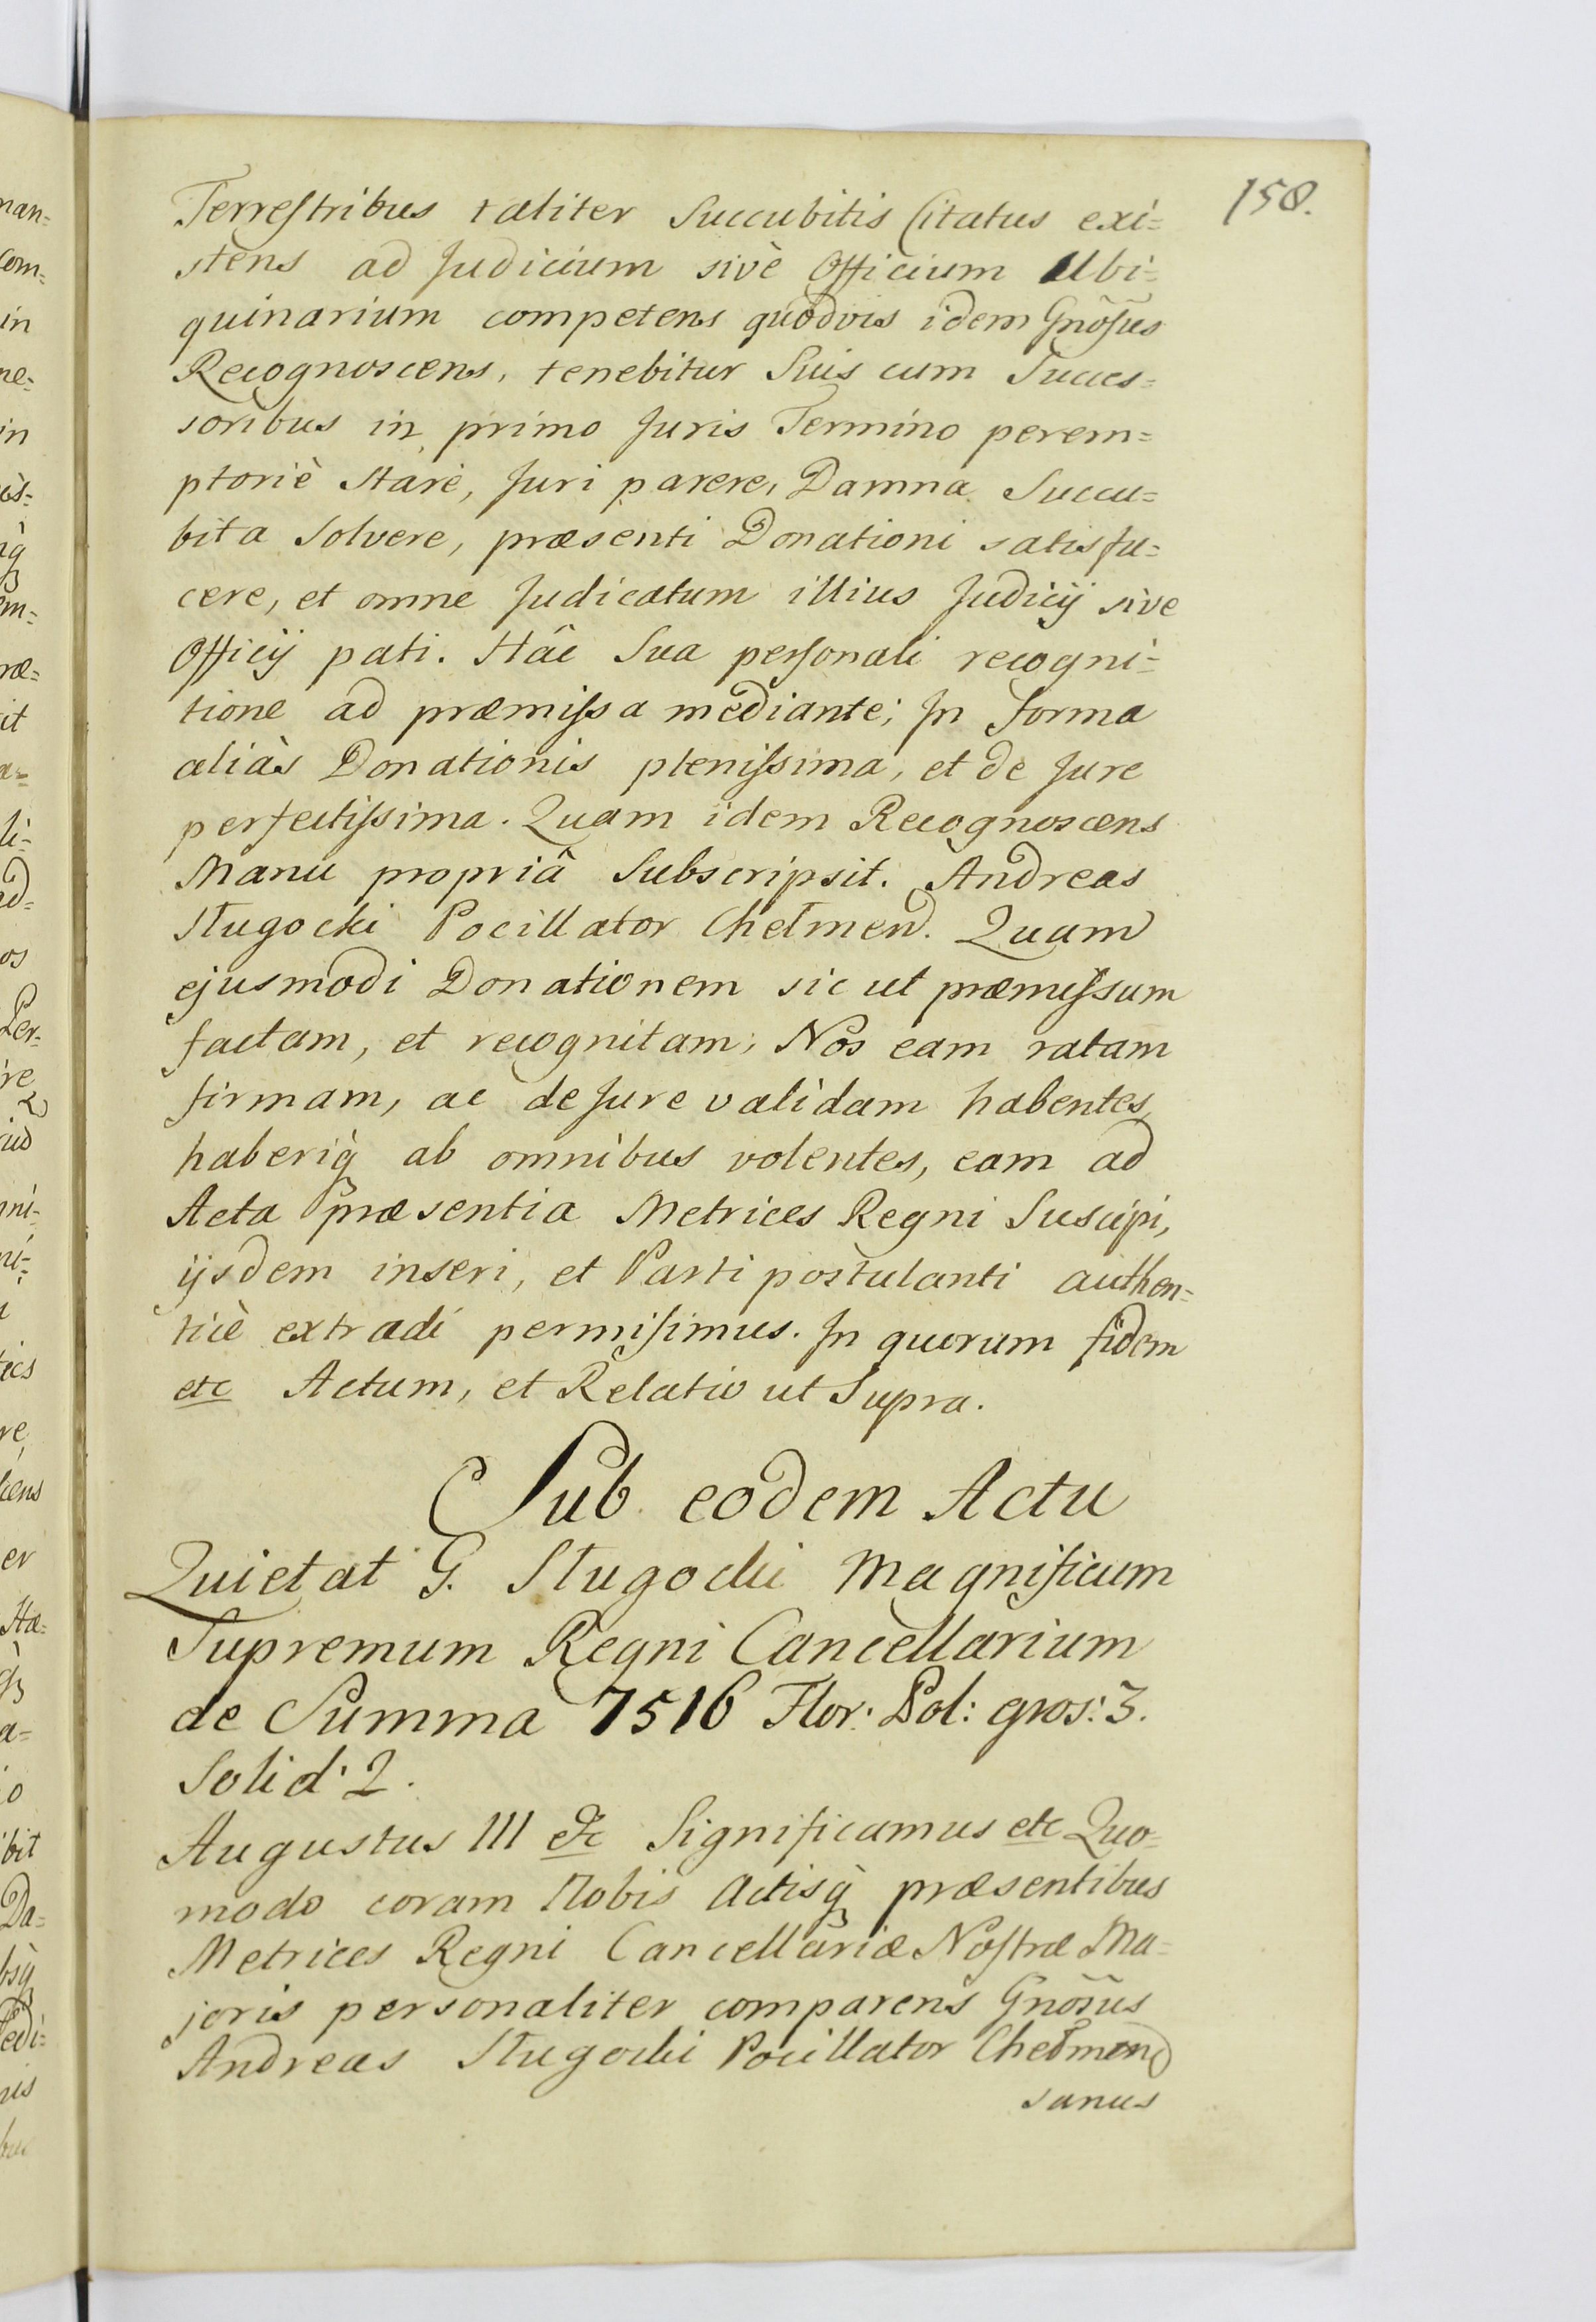 158.
Terrestribus taliter Succubitis Citatus exi=
stens ad Judicium sivè Officium Ubi=
quinarium competens quodvis idem Gnõsus
Recognoscens, tenebitur Suis cum Succes=
soribus in primo Juris Termino perem=
ptoriè Stare, Juri parere, Damna Succu=
bita Solvere, præsenti Donationi satisfa=
cere, et omne Judicatum illius Judicij sive
Officij pati. Hâc Sua personali recogni=
tione ad præmissa mediante; In Forma
aliàs Donationis plenissima, et de Jure
perfectissima. Quam idem Recognoscens
Manu propriâ Subscripsit. Andreas
Sługocki Pocillator Chełmen. Quam
ejusmodi Donationem sic ut præmissum
factam, et recognitam; Nos eam ratam
firmam, ac de Jure validam habentes,
haberiq̀ ab omnibus volentes, eam ad
Acta præsentia Metrices Regni Suscipi,
ijsdem inseri, et Parti postulanti authen=
ticè extradi permisimus. In quorum fidem
etc Actum, et Relatio ut Supra.
Sub eodem Actu
Quietat G. Sługocki Magnificum
Supremum Regni Cancellarium
de Summa 7516 Flor: Pol: gros: 3.
Solid: 2.
Augustus III etc Significamus etc Quo=
modo coram Nobis Actisq̀ præsentibus
Metrices Regni Cancellariæ Nostræ Ma=
joris personaliter comparens Gnõsus
Andreas Sługocki Pocillator Chełmen
sanus